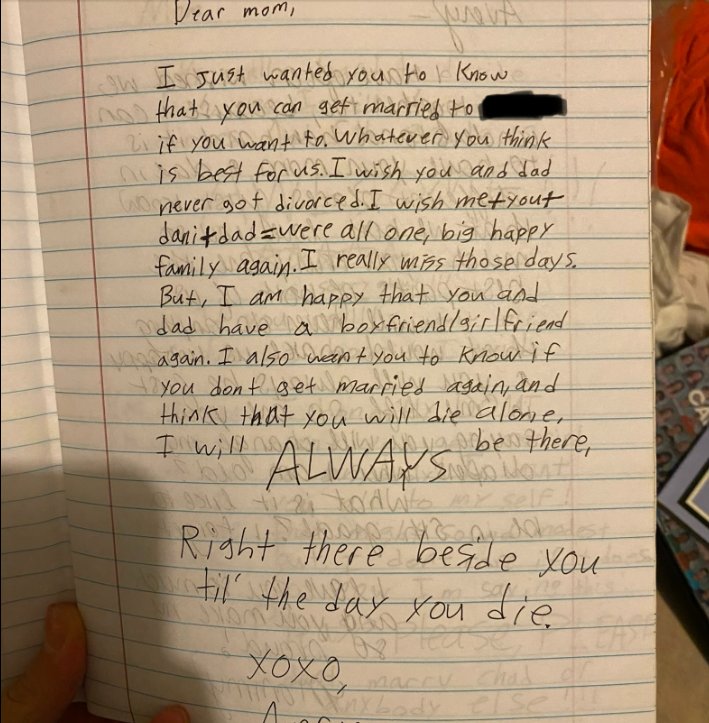 Dear mom,
I just wanted you to know
that you can get married to
if you want to. Whatever you think
is best for us. I wish you and dad
never got divorced. I wish me+you+
dani+dad=were all one, big happy
family again. I really miss those days.
But, I am happy that you and
dad have a boyfriend/girlfriend
again. I also want you to know if
you dont get married again, and
think that you will die alone,
I will ALWAYS be there,
Right there beside you
til' the day you die.
XOXO,